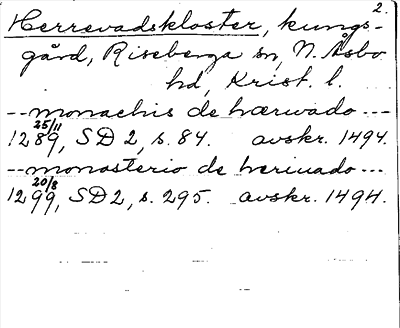 2.
Herrevadskloster, kungs-
gård, Riseberga sn, N. Åsbo
hd, Krist. l.
-- monachis de hærwado ---
25/11
1289, SD 2, s. 84. avskr. 1494.
-- monasterio de heriuado ---
20/8
1299, SD 2, s. 295. avskr. 1494.